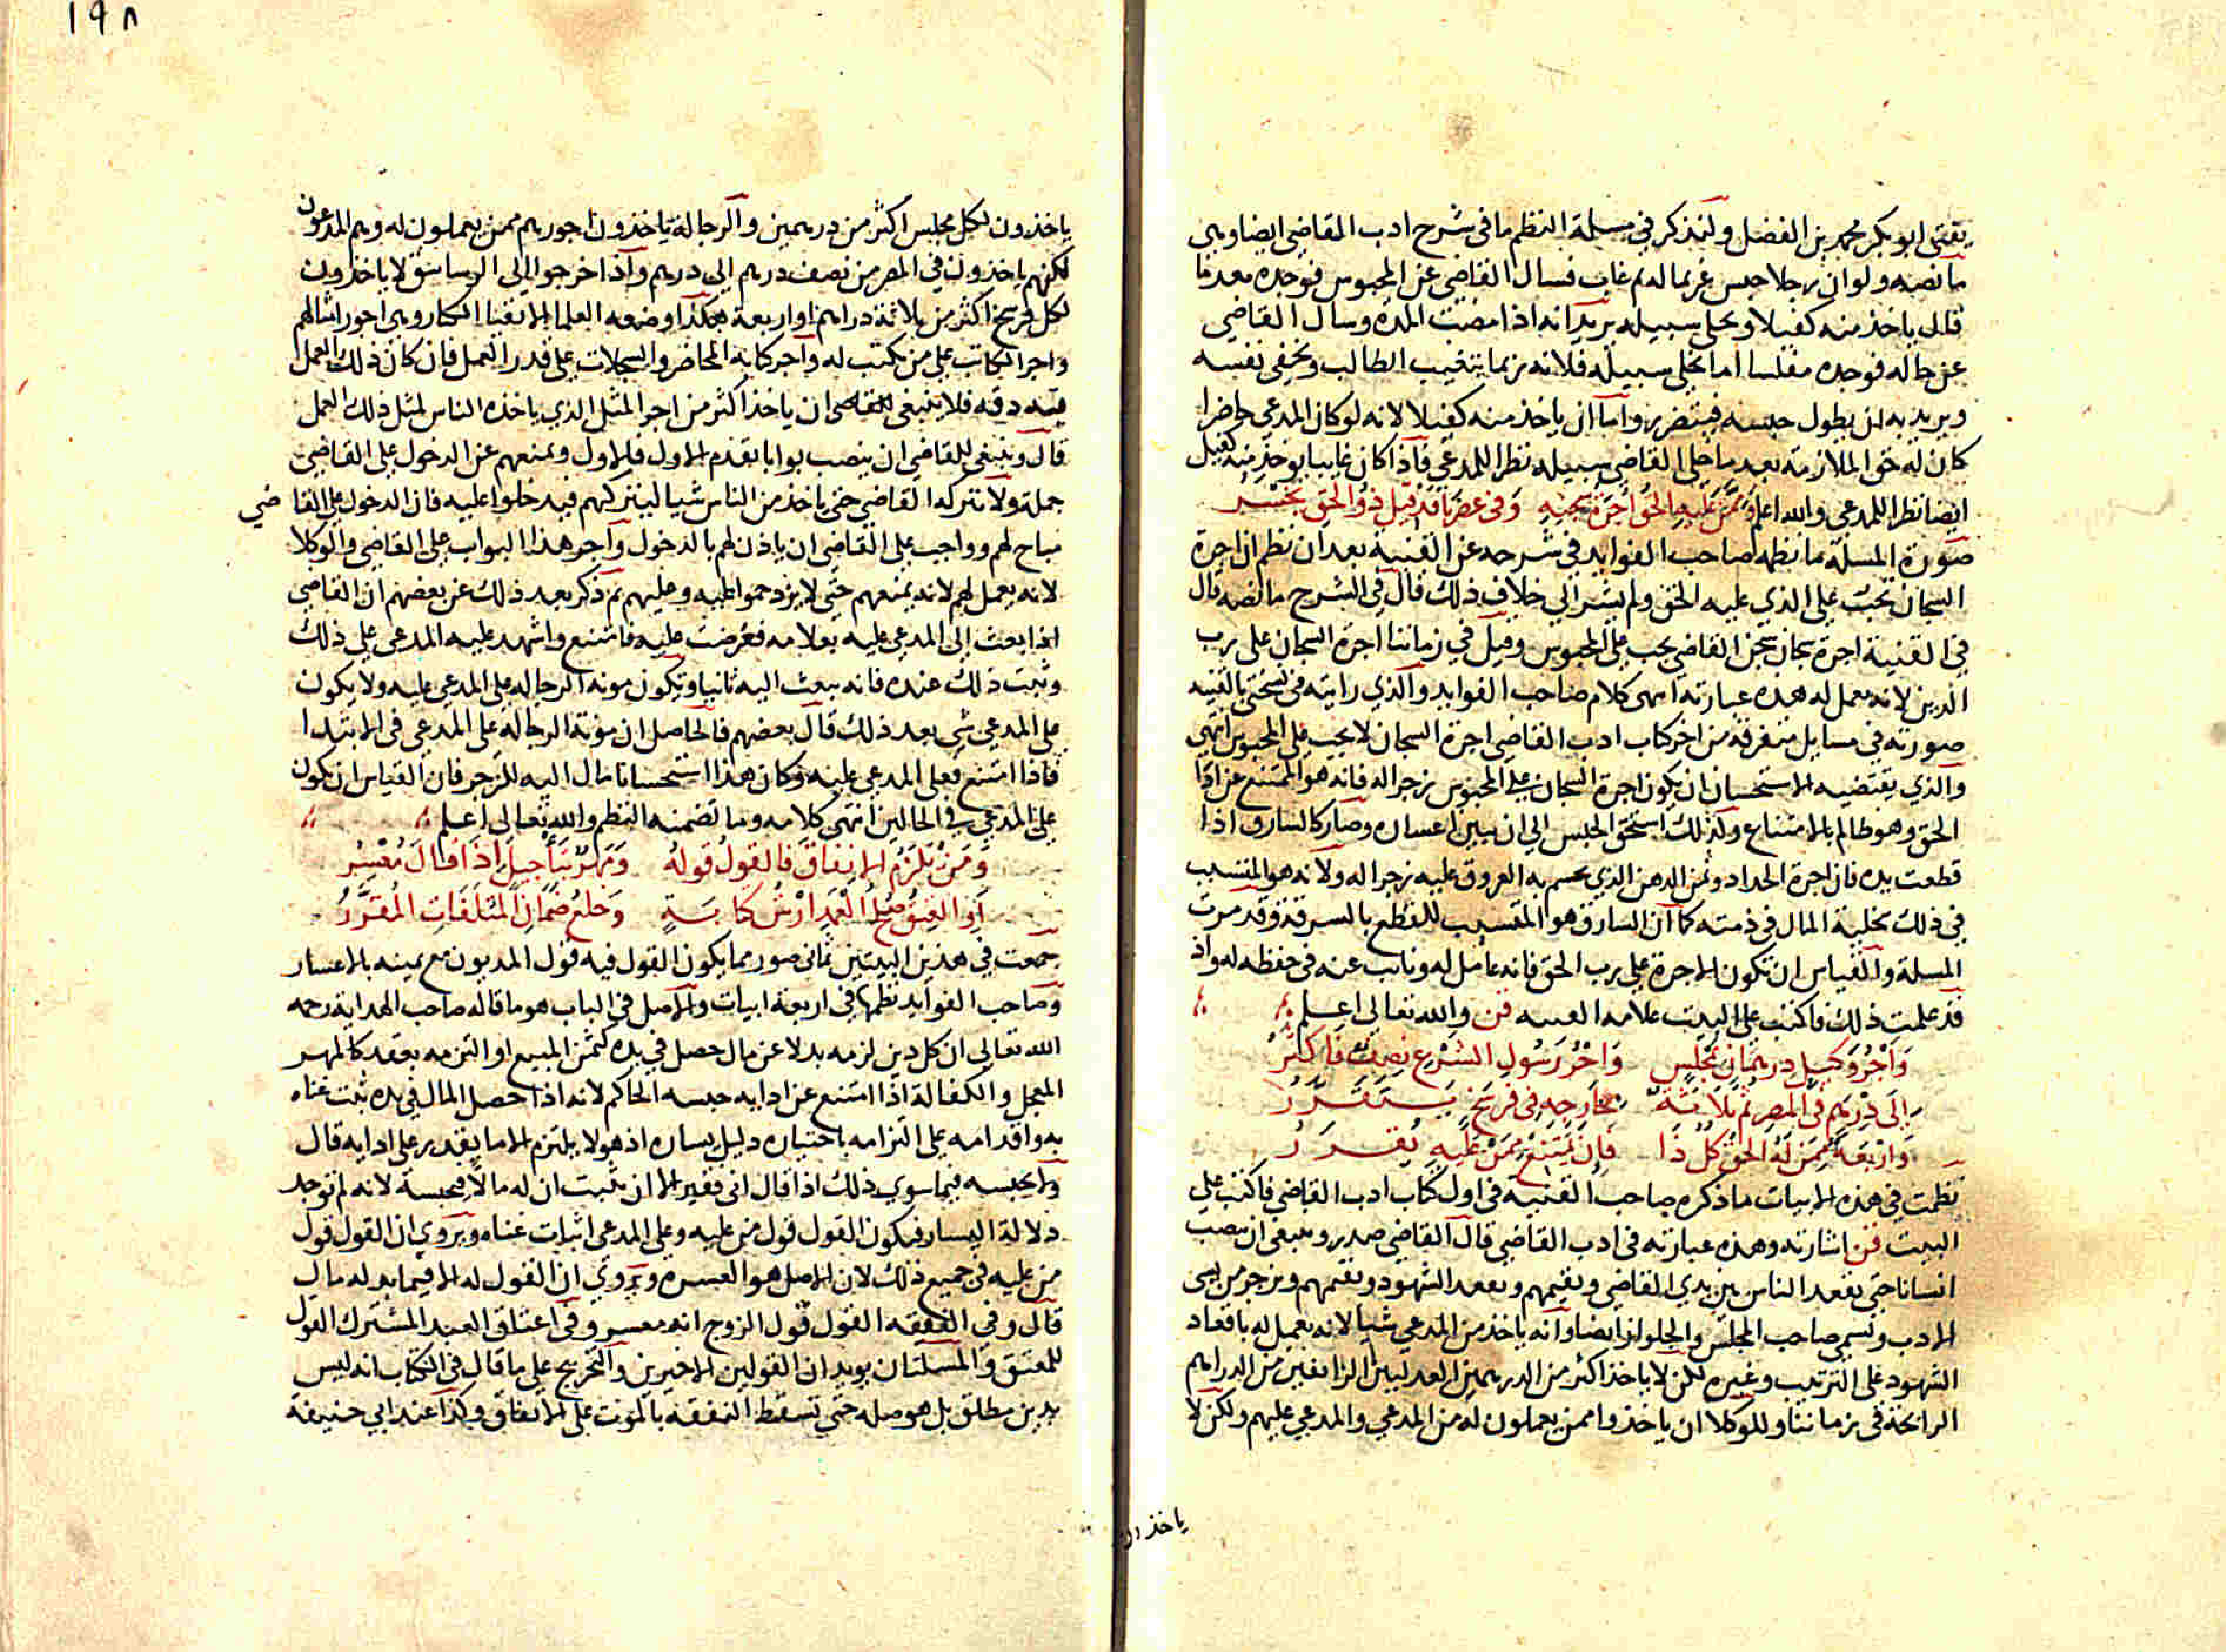 يفتى ابو بكر محمد بن الفضل ولنذكر في مسئلة النظم ما في شرح ادب القاضي ايضا وهي
ما نصه ولو ان رجلا حبس غريما له ثم غاب فسال القاضي عن المحبوس فوجده معدما
قال ياخذ منه كفيلا ويخلي سبيله يريد انه اذا مضت المدة وسال القاضي
عن حاله فوجده مفلسا اما يخلى سبيله فلانه ربما يتغيب الطالب ويخفى نفسه
ويريد به ان يطول حبسه فيتضرر واما ان ياخذ منه كفيلا لانه لو كان المدعي حاضرا
كان له حق الملازمة بعد ما خلى القاضي سبيله نظرا للمدعي فاذا كان غايبا يوخذ منه كفيل
ايضا نظرا للمدعي والله اعلم وممن عليه الحق اجرة سجنه وفي عصرنا قد قيل ذو الحق يخسر
صورة المسئلة ما نظمه صاحب الفوايد في شرحه عن القنية بعد ان نظم ان اجرة
السجان تجب على الذي عليه الحق ولم يشر الي خلاف ذلك قال في الشرح ما نصه قال
في القنية اجرة سجان سجن القاضي يجب على المحبوس وقيل في زماننا اجرة السجان على رب
الدين لانه يعمل له هذه عبارته انتهى كلام صاحب الفوايد والذي رايته في نسختي بالقنية
صورته في مسايل متفرقة من اخر كتاب ادب القاضي اجرة السجان لا يجب على المحبوس انتهى
والذي يقتضيه الاستحسان ان يكون اجرة السجان على المحبوس زجرا له فانه هو الممتنع عن ادا
الحق وهو ظالم بالامتناع وكذلك استحق الحبس الي ان يبين اعساره وصار كالسارق اذا
قطعت يده فان اجرة الحداد وثمن الدهن الذي يحسم به العروق عليه زجرا له ولانه هو المتسبب
في ذلك بخلية المال في ذمته كما ان السارق هو المتسبب للقطع بالسرقة وقد مرت
المسلة والقياس ان تكون الاجرة على رب الحق فانه عامل له ونايب عنه في حفظه له واذ
قد علمت ذلك فاكتب على البيت علامه القنيه قن والله تعالى اعلم
وأجر وكيل درهمان لمجلس واجر رسول الشرع نصف فاكثر
الى درهم في المصر ثم ثلاثة بخارجه في فرسخ يتقرر
واربعة ممن له الحق كل ذا فان يمتنع ممن عليه يقرر
نظمت في هذه الابيات ما ذكره صاحب القنية في اول كتاب ادب القاضي فاكتب على
البيت قن اشارته وهذه عبارته في ادب القاضي قال القاضي صدر وينبغي ان ينصب
انسانا حتى يقعد الناس بين يدي القاضي ويقيمهم ويقعد الشهود ويقيمهم ويزجر من يسى
الادب ويسمى صاحب المجلس والجلواز ايضا وانه ياخذ من المدعي شيا لانه يعمل له باقعاد
الشهود على الترتيب وغيره لكن لا ياخذ اكثر من الدرهمين العدليين الزايفين من الدراهم
الرايجة في زماننا وللوكلا ان ياخذوا ممن يعملون له من المدعي والمدعي عليهم ولكن لا
ياخذون
١٩٨
ياخذون لكل مجلس اكثر من درهمين والرجالة ياخذون اجورهم ممن يعملون له وهم المدعون
لكنهم ياخذون في المصر من نصف درهم الي درهم واذا خرجوا الى الرساتيق لا ياخذون
لكل فرسخ اكثر من ثلاثة دراهم او اربعة هكذا وضعه العلما الاتقيا الكبار وهي اجور امثالهم
واجر الكاتب على من يكتب له واجر كتابة المحاضر والسجلات على قدر العمل فان كان ذلك العمل
فيه دقه فلا ينبغي للقاضي ان ياخذ اكثر من اجر المثل الذي ياخذه الناس لمثل ذلك العمل
قال وينبغي للقاضي ان ينصب بوابا يقدم الاول فالاول ويمنعهم عن الدخول على القاضي
جملة ولا يتركه القاضي حتى ياخذ من الناس شيا ليتركهم فيدخلوا عليه فان الدخول على القاضي
مباح لهم وواجب على القاضي ان ياذن لهم بالدخول واجر هذا البواب على القاضي والوكلا
لانه يعمل لهم لانه يمنعهم حتى لا يزدحموا عليه وعليهم ثم ذكر بعد ذلك عن بعضهم ان القاضي
اذا بعث الى المدعى عليه بعلامه فعرضت عليه فامتنع واشهد عليه المدعي على ذلك
وثبت ذلك عنده فانه يبعث اليه ثانيا ويكون مونة الرجاله على المدعى عليه ولا يكون
على المدعي شي بعد ذلك قال بعضهم فالحاصل ان مونة الرجالة على المدعي في الابتدا
فاذا امتنع فعلى المدعى عليه وكان هذا استحسانا مال اليه للزجر فان القياس ان يكون
على المدعي في الحالين انتهى كلامه وما تضمنه النظم والله تعالى اعلم
ومن يلزم الانفاق فالقول قوله ومهر بتأجيل اذا قال معسر
او العتق صلح العمد ارش كا وخلع ضمان المتلفات المقرر
جمعت في هذين البيتين ثماني صور مما يكون القول فيه قول المديون مع يمينه بالاعسار
وصاحب الفوايد نظمها في اربعة ابيات والاصل في الباب هو ما قاله صاحب الهداية رحمه
الله تعالى ان كل دين لزمه بدلا عن مال حصل في يده كثمن المبيع او التزمه بعقد كالمهر
المعجل والكفالة اذا امتنع عن ادايه حبسه الحاكم لانه اذا حصل المال في يده ثبت غناه
به واقدامه على التزامه باختياره دليل يساره اذ هو لا يلتزم الا ما يقدر على ادايه قال
ولا يحبسه فيما سوي ذلك اذا قال اني فقير الا ان يثبت ان له مالا فيحبسه لانه لم توجد
دلالة اليسار فيكون القول قول من عليه وعلى المدعي اثبات غناه ويروي ان القول قول
من عليه في جميع ذلك لان الاصل هو العسرة ويروي ان القول له الا فيما بدله مال
قال وفي النفقه القول قول الزوج انه معسر وفي اعتاق العبد المشترك القول
للمعتق والمسئلتان يويدان القولين الاخيرين والتخريج على ما قال في الكتاب انه ليس
بدين مطلق بل هو صلة حتى تسقط النفقه بالموت على الاتفاق وكذا عند ابي حنيفة